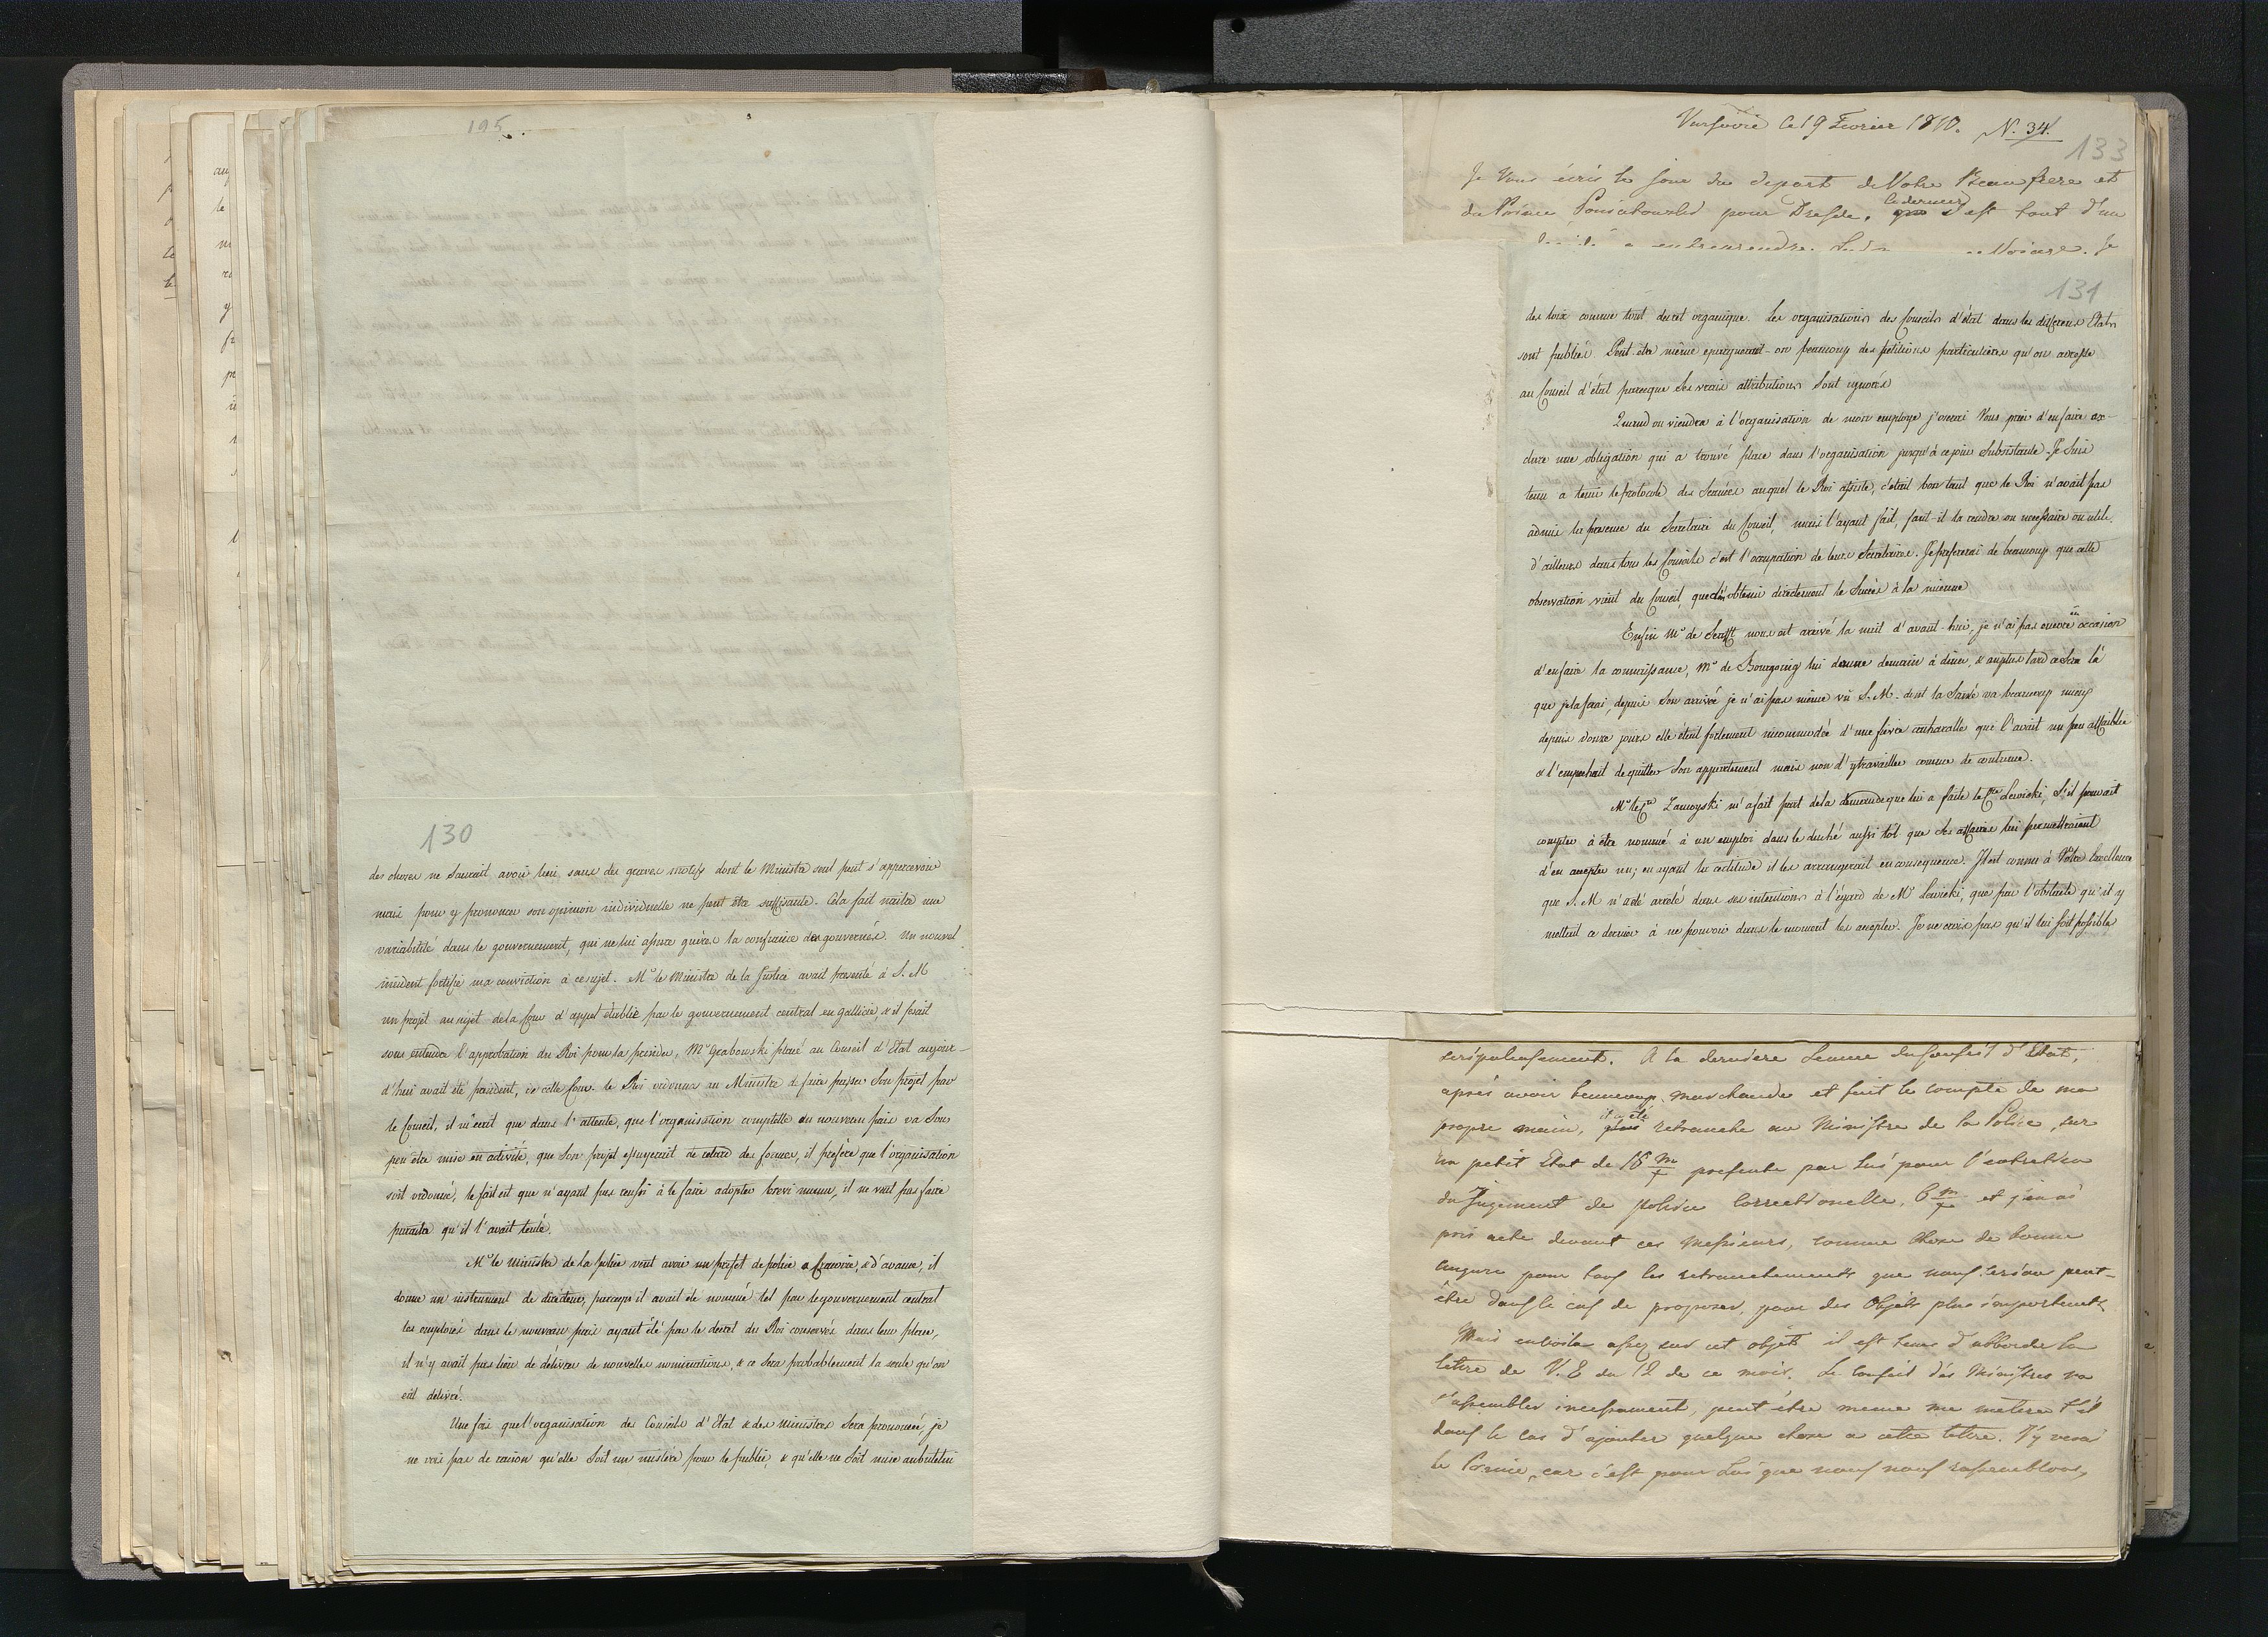 195
130
des choses ne saurait avoir lieu sans des graves motifs dont le Ministre seul peut s'appercevoir
mais pour y prononcer son opinion individuelle ne peut être suffisante. Cela fait naitre une
variabilité dans le gouvernement, qui ne lui assure guères la confiance des gouvernés. Un nouvel
incident fortifie ma conviction à ce sujet. Mr le Ministre de la Justice avait presenté à S. M
un projet au sujet de la Cour d'appel établie par le gouvernement central en Gallicie, & il fesait
sous entendre l'approbation du Roi pour la prendre, Mr Grabowski placé au Conseil d'Etat aujour-
d'hui avait été president, de cette Cour. le Roi ordonna au Ministre de faire passer son projet par
le Conseil, il m'écrit que dans l'attente, que l'organisation complette du nouveau païs va sous
peu être mise en activité, que son projet essuyerait ce retard des formes, il prefère que l'organisation
soit ordonné, le fait est que n'ayant pas reussi à le faire adopter brevi manu, il ne veut pas faire
paraitre qu'il l'avait tenté.
Mr le ministre de la police veut avoir un prefet de police a Cracovie, & d'avance, il
donne un instrument de directeur, parcequ'il avait été nommé tel par le gouvernement central
les employés dans le nouveau païs ayant été par le decret du Roi conservés dans leur place,
il n'y avait pas lieu de délivrer de nouvelles nominations, & ce sera probablement la seule qu'on
eut delivré.
Une fois que l'organisation des Conseils d'Etat & des ministres sera prononcée, je
ne vois pas de raison qu'elle soit un mistère pour le public, & qu'elle ne soit mise au bulletin
Varsovie le 19 Fevrier 1810. N. 34.
133
Je Vous écris le jour du depart de Votre Beaufrere et
du Prince Poniatowski pour Dresde. le dernier s'est tout d'un
entreprendre. Je
131
des loix comme tout decret organique. Les organisations des Conseils d'état dans les differens Etats
sont publiés. Peut-être même epargnerait-on beaucoup des petitions particulières qu'on adresse
au Conseil d'état parceque ses vrais attributions sont ignorés
Quand on viendra à l'organisation de mon employe j'oserai Vous prier d'en faire ex-
clure une obligation qui a trouvé place dans l'organisation jusqu'à ce jour subsistante. Je suis
tenu a tenir le protocole des Seances auquel le Roi assiste, c'etait bon tant que le Roi n'avait pas
admis la presence du Secretaire du Conseil, mais l'ayant fait, faut-il la rendre ou necessaire ou utile.
d'ailleurs dans tous les Conseils c'est l'occupation de leurs Secretaires. Je prefererai de beaucoup que cette
observation vient du Conseil, que d'en obtenir directement le succès à la mienne
Enfin Mr de Senfft nous est arrivé la nuit d'avant-hier, je n'ai pas encore eu occasion
d'en faire la connaissance, Mr de Bourgoing lui donne demain à diner, & au plus tard ce sera là
que je la ferai, depuis son arrivée je n'ai pas même vu S. M. dont la Santé va beaucoup mieux
depuis douze jours elle était fortement incommodée d'une fievre catharalle qui l'avait un peu affaiblie
& l'empechait de quitter son appartement mais non d'y travailler comme de coutume.
Mr le Cte Zamoyski m'a fait part de la demande que lui a faite le Cte Lewicki, s'il pouvait
compter à être nommé à un emploi dans le duché aussi tôt que ses affaires lui permettraient
d'en accepter un; en ayant la certitude il les arrangerait en consequence. Il est connu à Votre Excellence
que S. M n'a été arreté dans ses intentions à l'égard de Mr Lewicki, que par l'obstacle qu'il y
mettait ce dernier à ne pouvoir dans le moment les accepter. Je ne crois pas qu'il lui soit possible
scrupuleusement. A la derniere Seance du Conseil d'Etat,
après avoir beaucoup marchandé et fait le compte de ma
propre main, il a été retranché au Ministre de la Police, sur
un petit Etat de 16 m/f presenté par lui pour l'entretien
du Jugement de Police Correctionelle, 6 m/f et j'en ai
pris acte devant ces Messieurs, comme chose de bonne
augure pour tous les retranchements que nous serions peut-
être dans le cas de proposer, pour des Objets plus importants
Mais en voila assez sur cet objet il est tems d'abborder la
lettre de V. E du 12 de ce mois. Le Conseil des Ministres va
s'assembler incessament, peut être meme me mettra t'il
dans le cas d'ajouter quelque chose a cette lettre. J'y verai
le Prince, car c'est pour Lui que nous nous rassemblons,